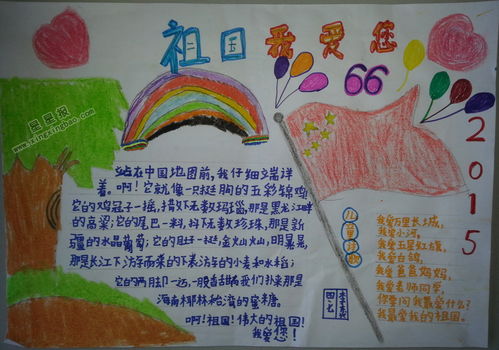 祖国我爱您
66
2015
星星报
www.xingxingbao.com
站在中国地图前,我仔细端详
着。啊!它就像一只挺胸的五彩锦鸡,
它的鸡冠子一摇,
那是黑龙江畔
的高梁;它的尾巴一抖,抖下无数珍珠,那是新
疆的水晶葡萄;它的肚子一挺,金灿灿,明晃晃,
那是长江下游
的小麦和水稻;
它的两肢
一股香甜
那是
海南椰林
的蜜糖。
啊!祖国!伟大的祖国!
我爱您!
儿童诗歌
我爱万里长城,
我爱小河,
我爱五星红旗,
我爱白鸽,
我爱爸爸妈妈,
我爱老师同学,
你要问我最爱什么?
我最爱我的祖国。